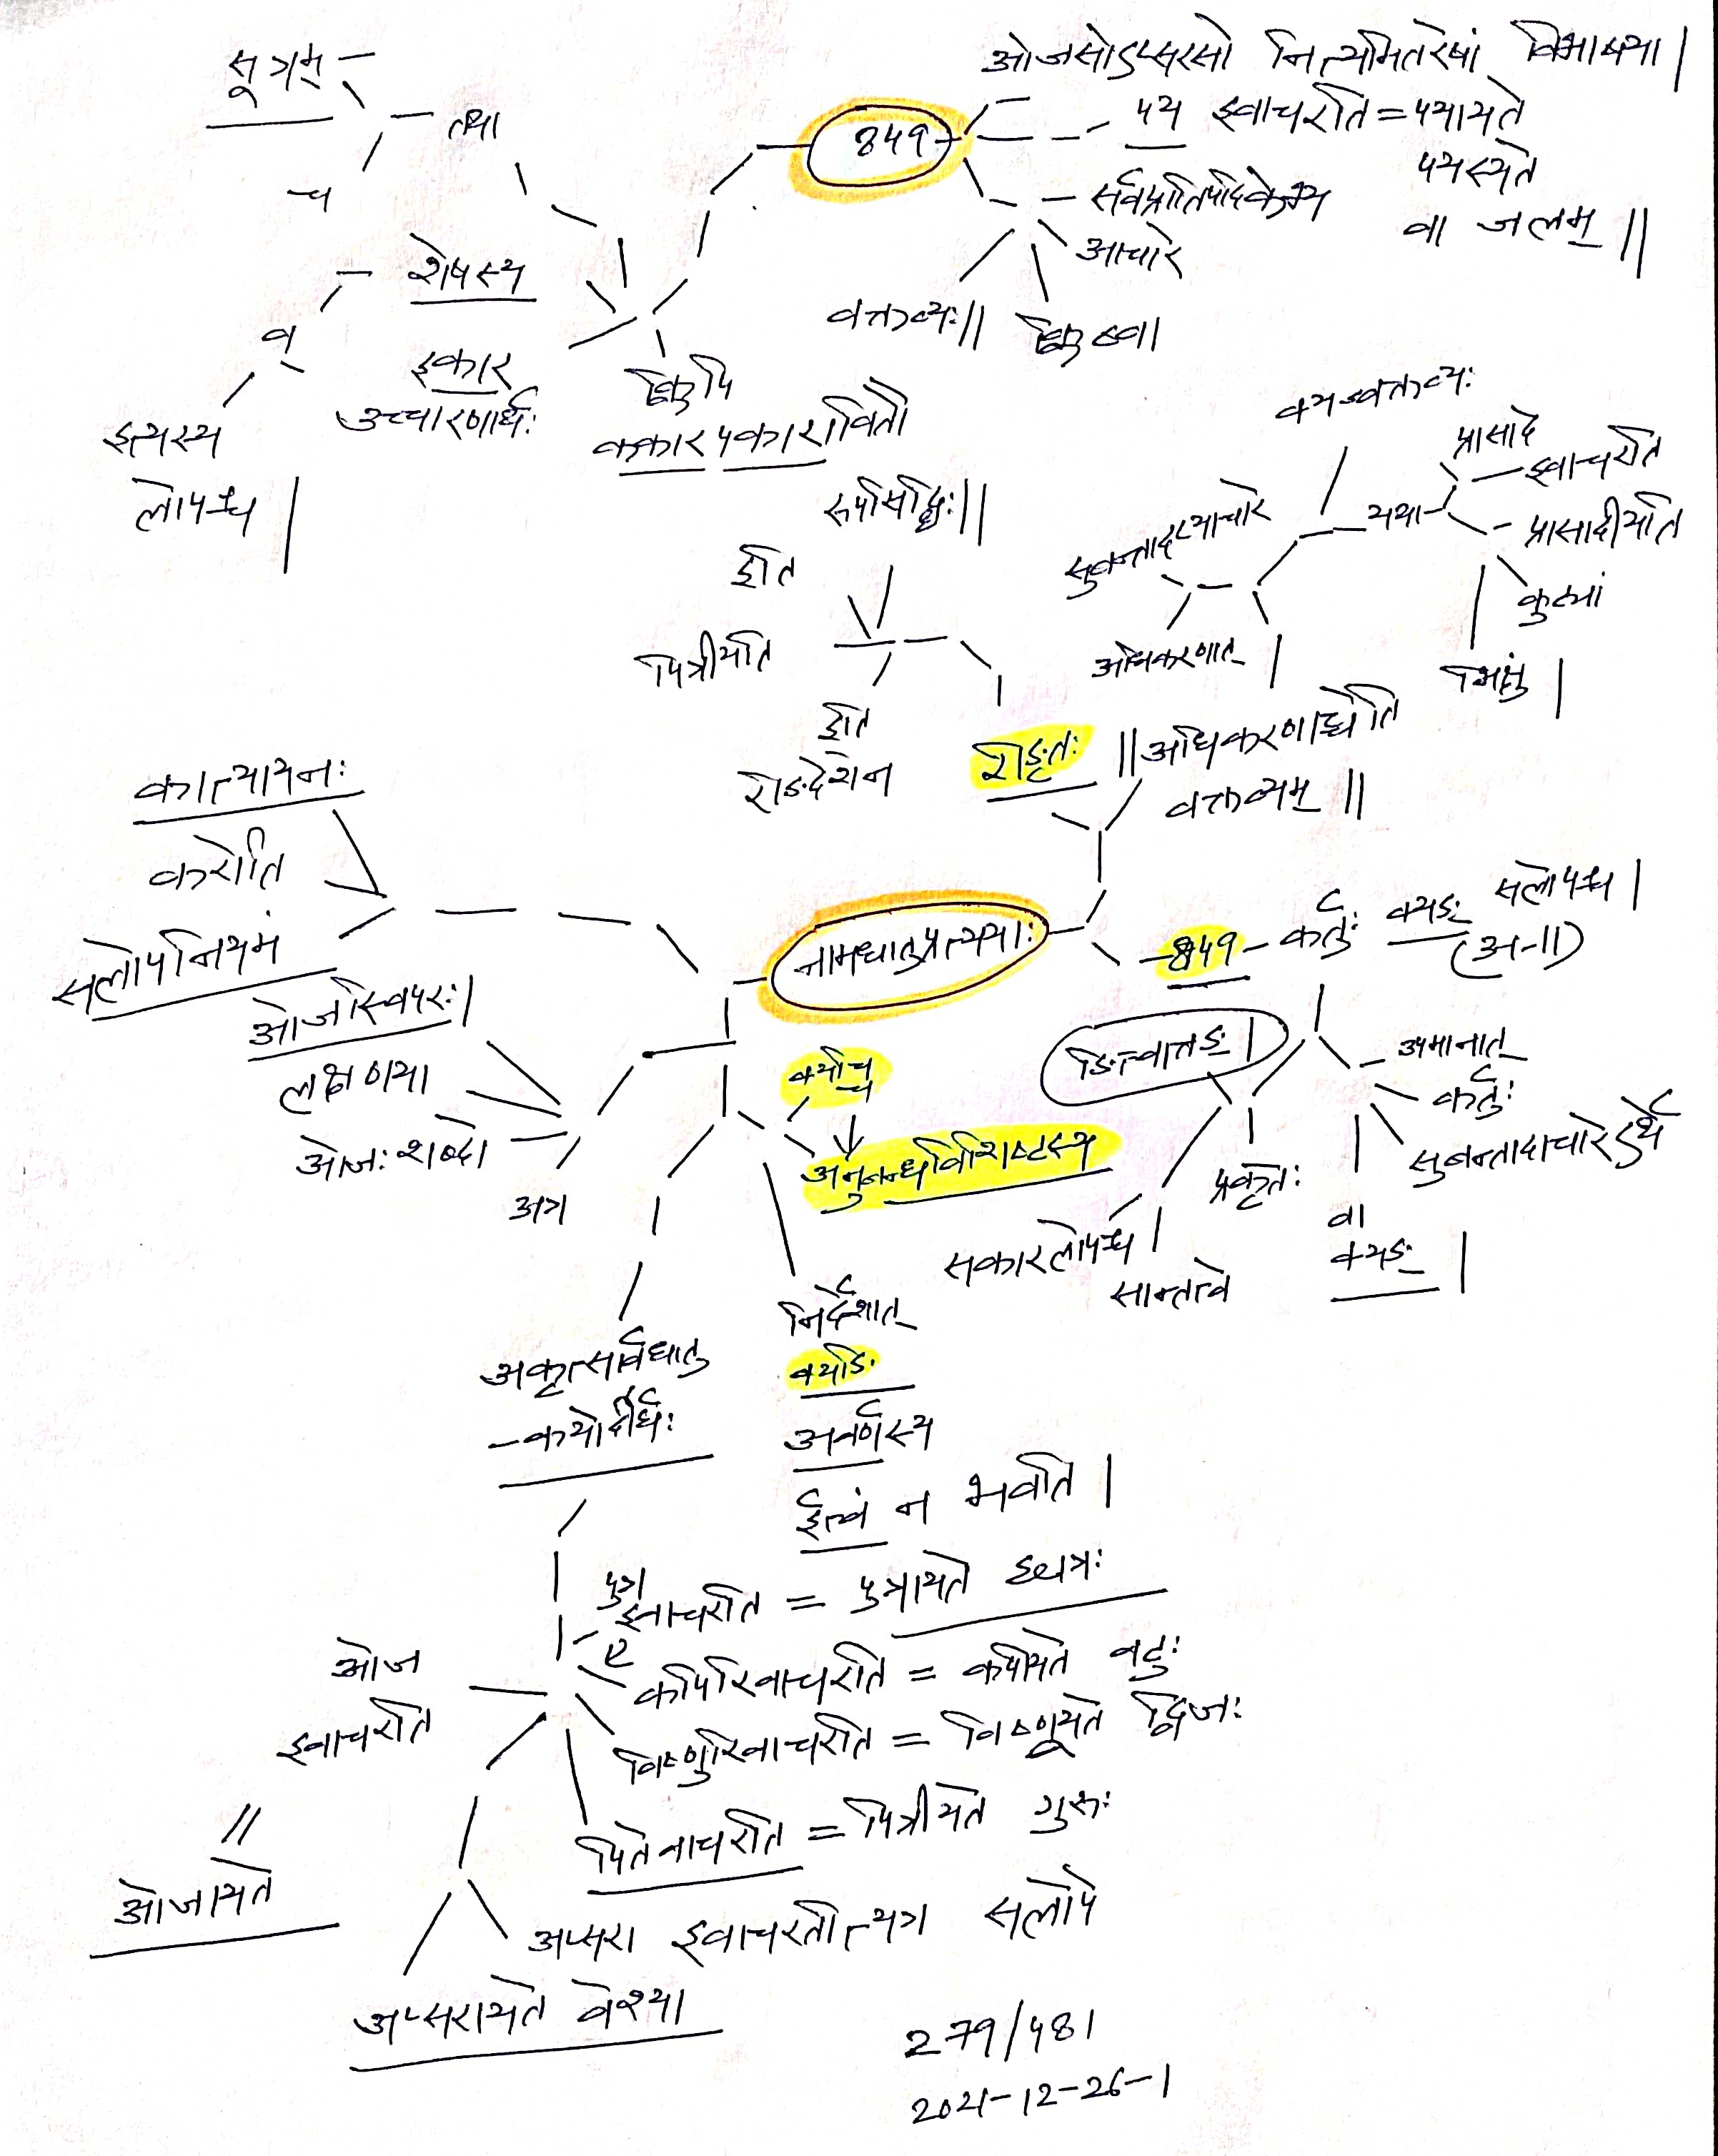 सूत्रम् –
तथा
च
शेषस्य
व्
इत्यस्य
लोपश्च |
इकार
उच्चारणार्थः
क्विपि
ककारपकारावितौ
रूपसिद्धिः ||
849
ओजसोऽप्सरसो नित्यमितरेषां विभाषया |
पय इवाचरति = पयायते
पयस्यते
वा जलम् ||
सर्वप्रातिपदिकेभ्य
आचारे
क्विब्वा
वक्तव्यः ||
क्यज्वक्तव्यः
प्रासादे
इवाचरति
यथा
प्रासादीयति
कुट्यां
भिक्षुः |
सुबन्तादप्याचारे
अधिकरणात् |
इति
पित्रीयति
इति
रीङादेशेन
रीङृतः
|| अधिकरणाच्चेति
वक्तव्यम् ||
कात्यायनः
करोति
सलोपनियमं
ओजस्विपरः |
लक्षणया
ओजःशब्दो
अत्र
नामधातुप्रत्ययाः
849 – कर्तुः क्यङ् सलोपश्च |
(3-11)
ङित्त्वात्तङ् |
उपमानात्
कर्तुः
सुबन्तादाचारेऽर्थे
वा
क्यङ् |
प्रकृतेः
सान्तत्वे
सकारलोपश्च |
क्यचि च
अनुबन्धविशिष्टस्य
निर्देशात्
क्यङि
अवर्णस्य
ईत्वं न भवति |
अकृत्सार्वधातु
– कयोर्दीर्घः
पुत्र
इवाचरति = पुत्रायते छात्रः
कपिरिवाचरति = कपीयते बटुः
विष्णुरिवाचरति = विष्णूयते द्विजः
पितेवाचरति = पित्रीयते गुरुः
अप्सरा इवाचरतीत्यत्र सलोपे
अप्सरायते वेश्या
ओज
इवाचरति
=
ओजायते
279/481
2021-12-26-1